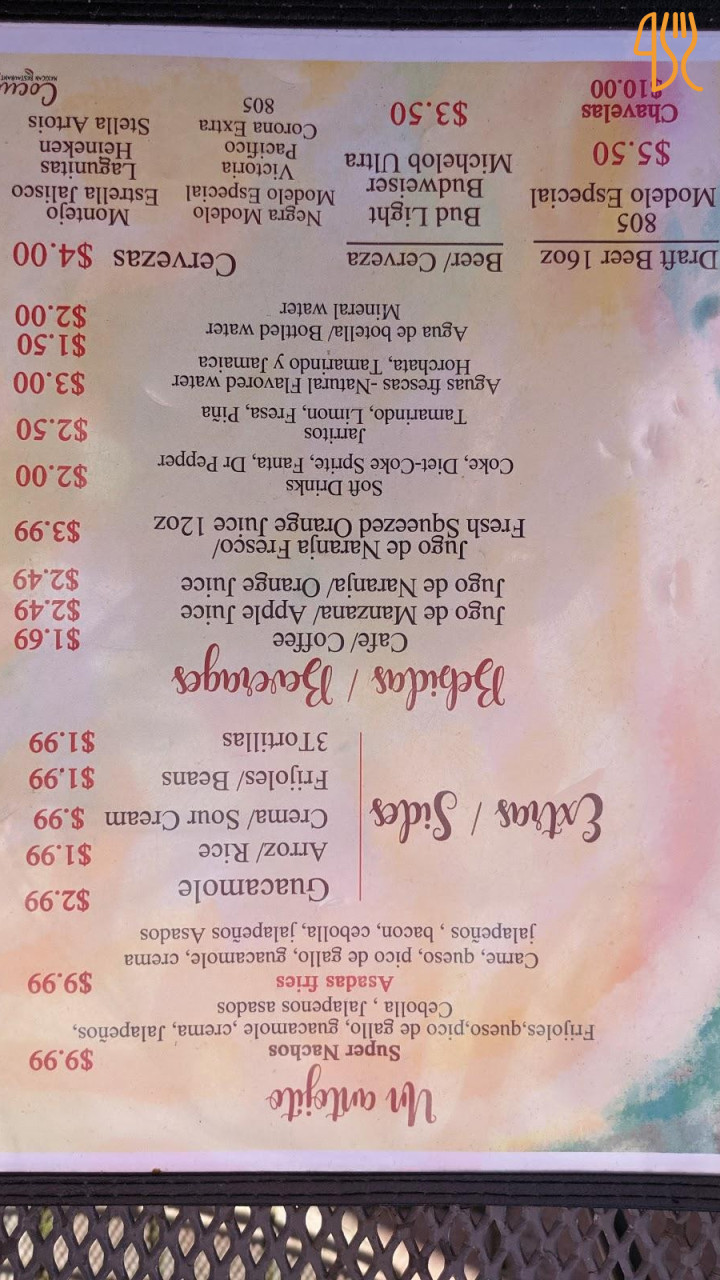 Un antojito
Super Nachos $9.99
Frijoles,queso,pico de gallo, guacamole ,crema, Jalapeños,
Cebolla , Jalapenos asados
Asadas fries $9.99
Carne, queso, pico de gallo, guacamole, crema
jalapeños , bacon, cebolla, jalapeños Asados
Extras / Sides
Guacamole $2.99
Arroz/ Rice $1.99
Crema/ Sour Cream $.99
Frijoles/ Beans $1.99
3Tortillas $1.99
Bebidas / Beverages
Cafe/ Coffee $1.69
Jugo de Manzana/ Apple Juice $2.49
Jugo de Naranja/ Orange Juice $2.49
Jugo de Naranja Fresco/
Fresh Squeezed Orange Juice 12oz $3.99
Soft Drinks
Coke, Diet-Coke Sprite, Fanta, Dr Pepper $2.00
Jarritos
Tamarindo, Limon, Fresa, Piña $2.50
Aguas frescas -Natural Flavored water $3.00
Horchata, Tamarindo y Jamaica
Agua de botella/ Bottled water $1.50
Mineral water $2.00
Draft Beer 16oz
805
Modelo Especial
$5.50
Chavelas
$10.00
Beer/ Cerveza
Bud Light
Budweiser
Michelob Ultra
$3.50
Cervezas $4.00
Negra Modelo
Modelo Especial
Victoria
Pacifico
Corona Extra
805
Montejo
Estrella Jalisco
Lagunitas
Heineken
Stella Artois